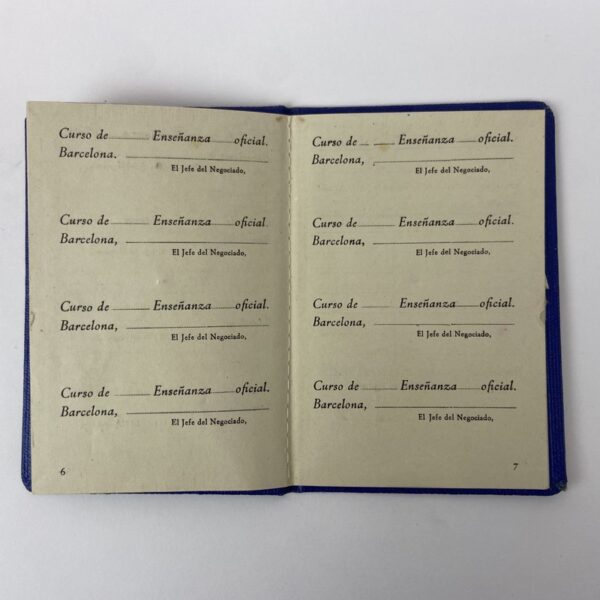 Curso de ____ Enseñanza ____ oficial.
Barcelona. ____________________
El Jefe del Negociado,
Curso de ____ Enseñanza ____ oficial.
Barcelona, ____________________
El Jefe del Negociado,
Curso de ____ Enseñanza ____ oficial.
Barcelona, ____________________
El Jefe del Negociado,
Curso de ____ Enseñanza ____ oficial.
Barcelona, ____________________
El Jefe del Negociado,
6
Curso de ____ Enseñanza ____ oficial.
Barcelona, ____________________
El Jefe del Negociado,
Curso de ____ Enseñanza ____ oficial.
Barcelona, ____________________
El Jefe del Negociado,
Curso de ____ Enseñanza ____ oficial.
Barcelona, ____________________
El Jefe del Negociado,
Curso de ____ Enseñanza ____ oficial.
Barcelona, ____________________
El Jefe del Negociado,
7